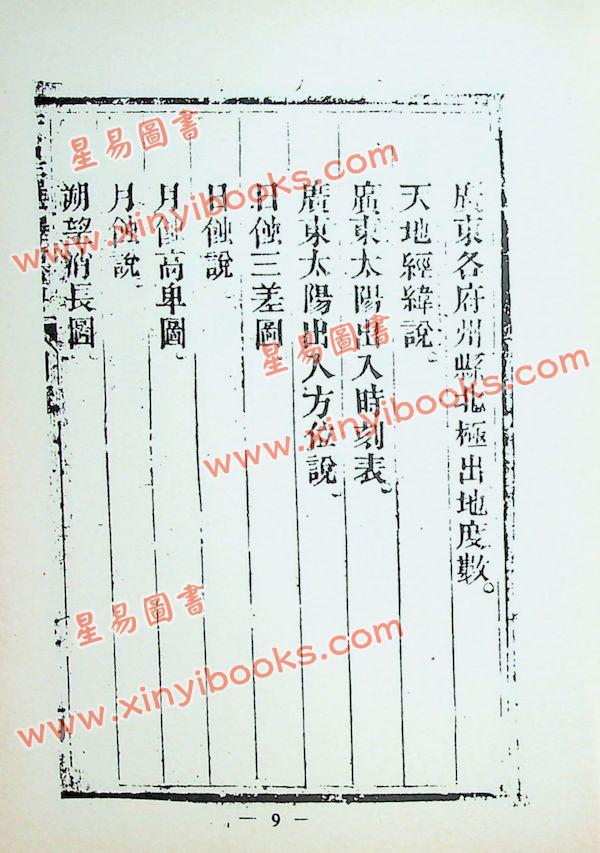 廣東各府州縣北極出地度數。
天地經緯說。
廣東太陽出入時刻表。
廣東太陽出入方位說。
日蝕三差圖
日蝕說
月蝕高卑圖
月蝕說
朔望消長圖
— 9 —
星易圖書
www.xinyibooks.com
星易圖書
www.xinyibooks.com
星易圖書
www.xinyibooks.com